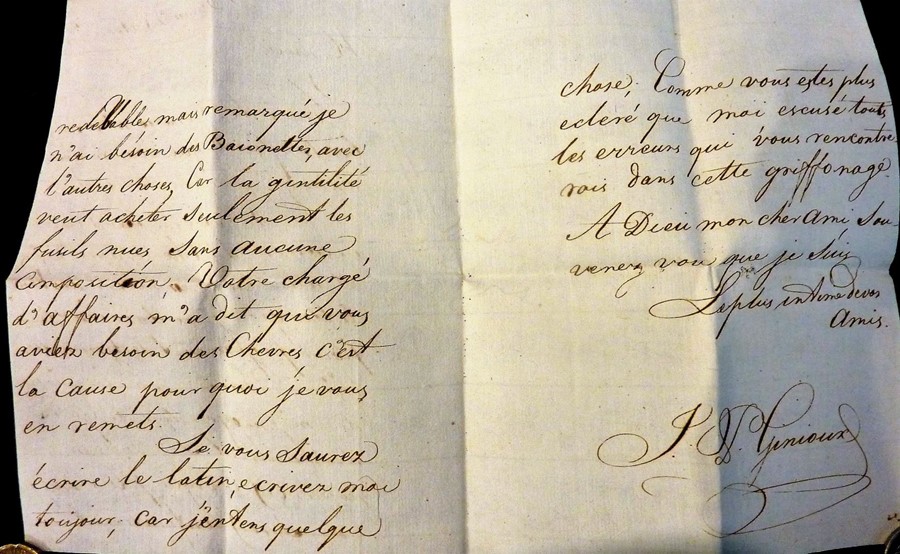 redevables mais remarqué je
n'ai bésoin des Baionettes, avec
l'autres choses, Car la gintilité
veut acheter seulement les
fusils nues Sans aucune
Composition. Votre chargé
d'affaires m'a dit que vous
aviez besoin des Chevres c'est
la cause pour quoi je vous
en remets.
Si vous Saurez
écrire le latin, ecrivez moi
toujour, car j'entens quelque
chose, Comme vous estes plus
ecleré que moi escusé touts
les erreurs qui vous rencontre
rois dans cette griffonage.
A Dieu mon cher Ami Sou
venez vou que je Suis
Le plus intime de vos
Amis.
Ginioux